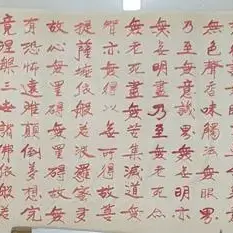 無色聲香味觸法無眼界
乃至無意識界無無明亦
無無明盡乃至無老死亦
無老死盡無苦集滅道無
智亦無得以無所得故菩
提薩埵依般若波羅蜜多
故心無罣礙無罣礙故無
有恐怖遠離顛倒夢想究
竟涅槃三世諸佛依般若